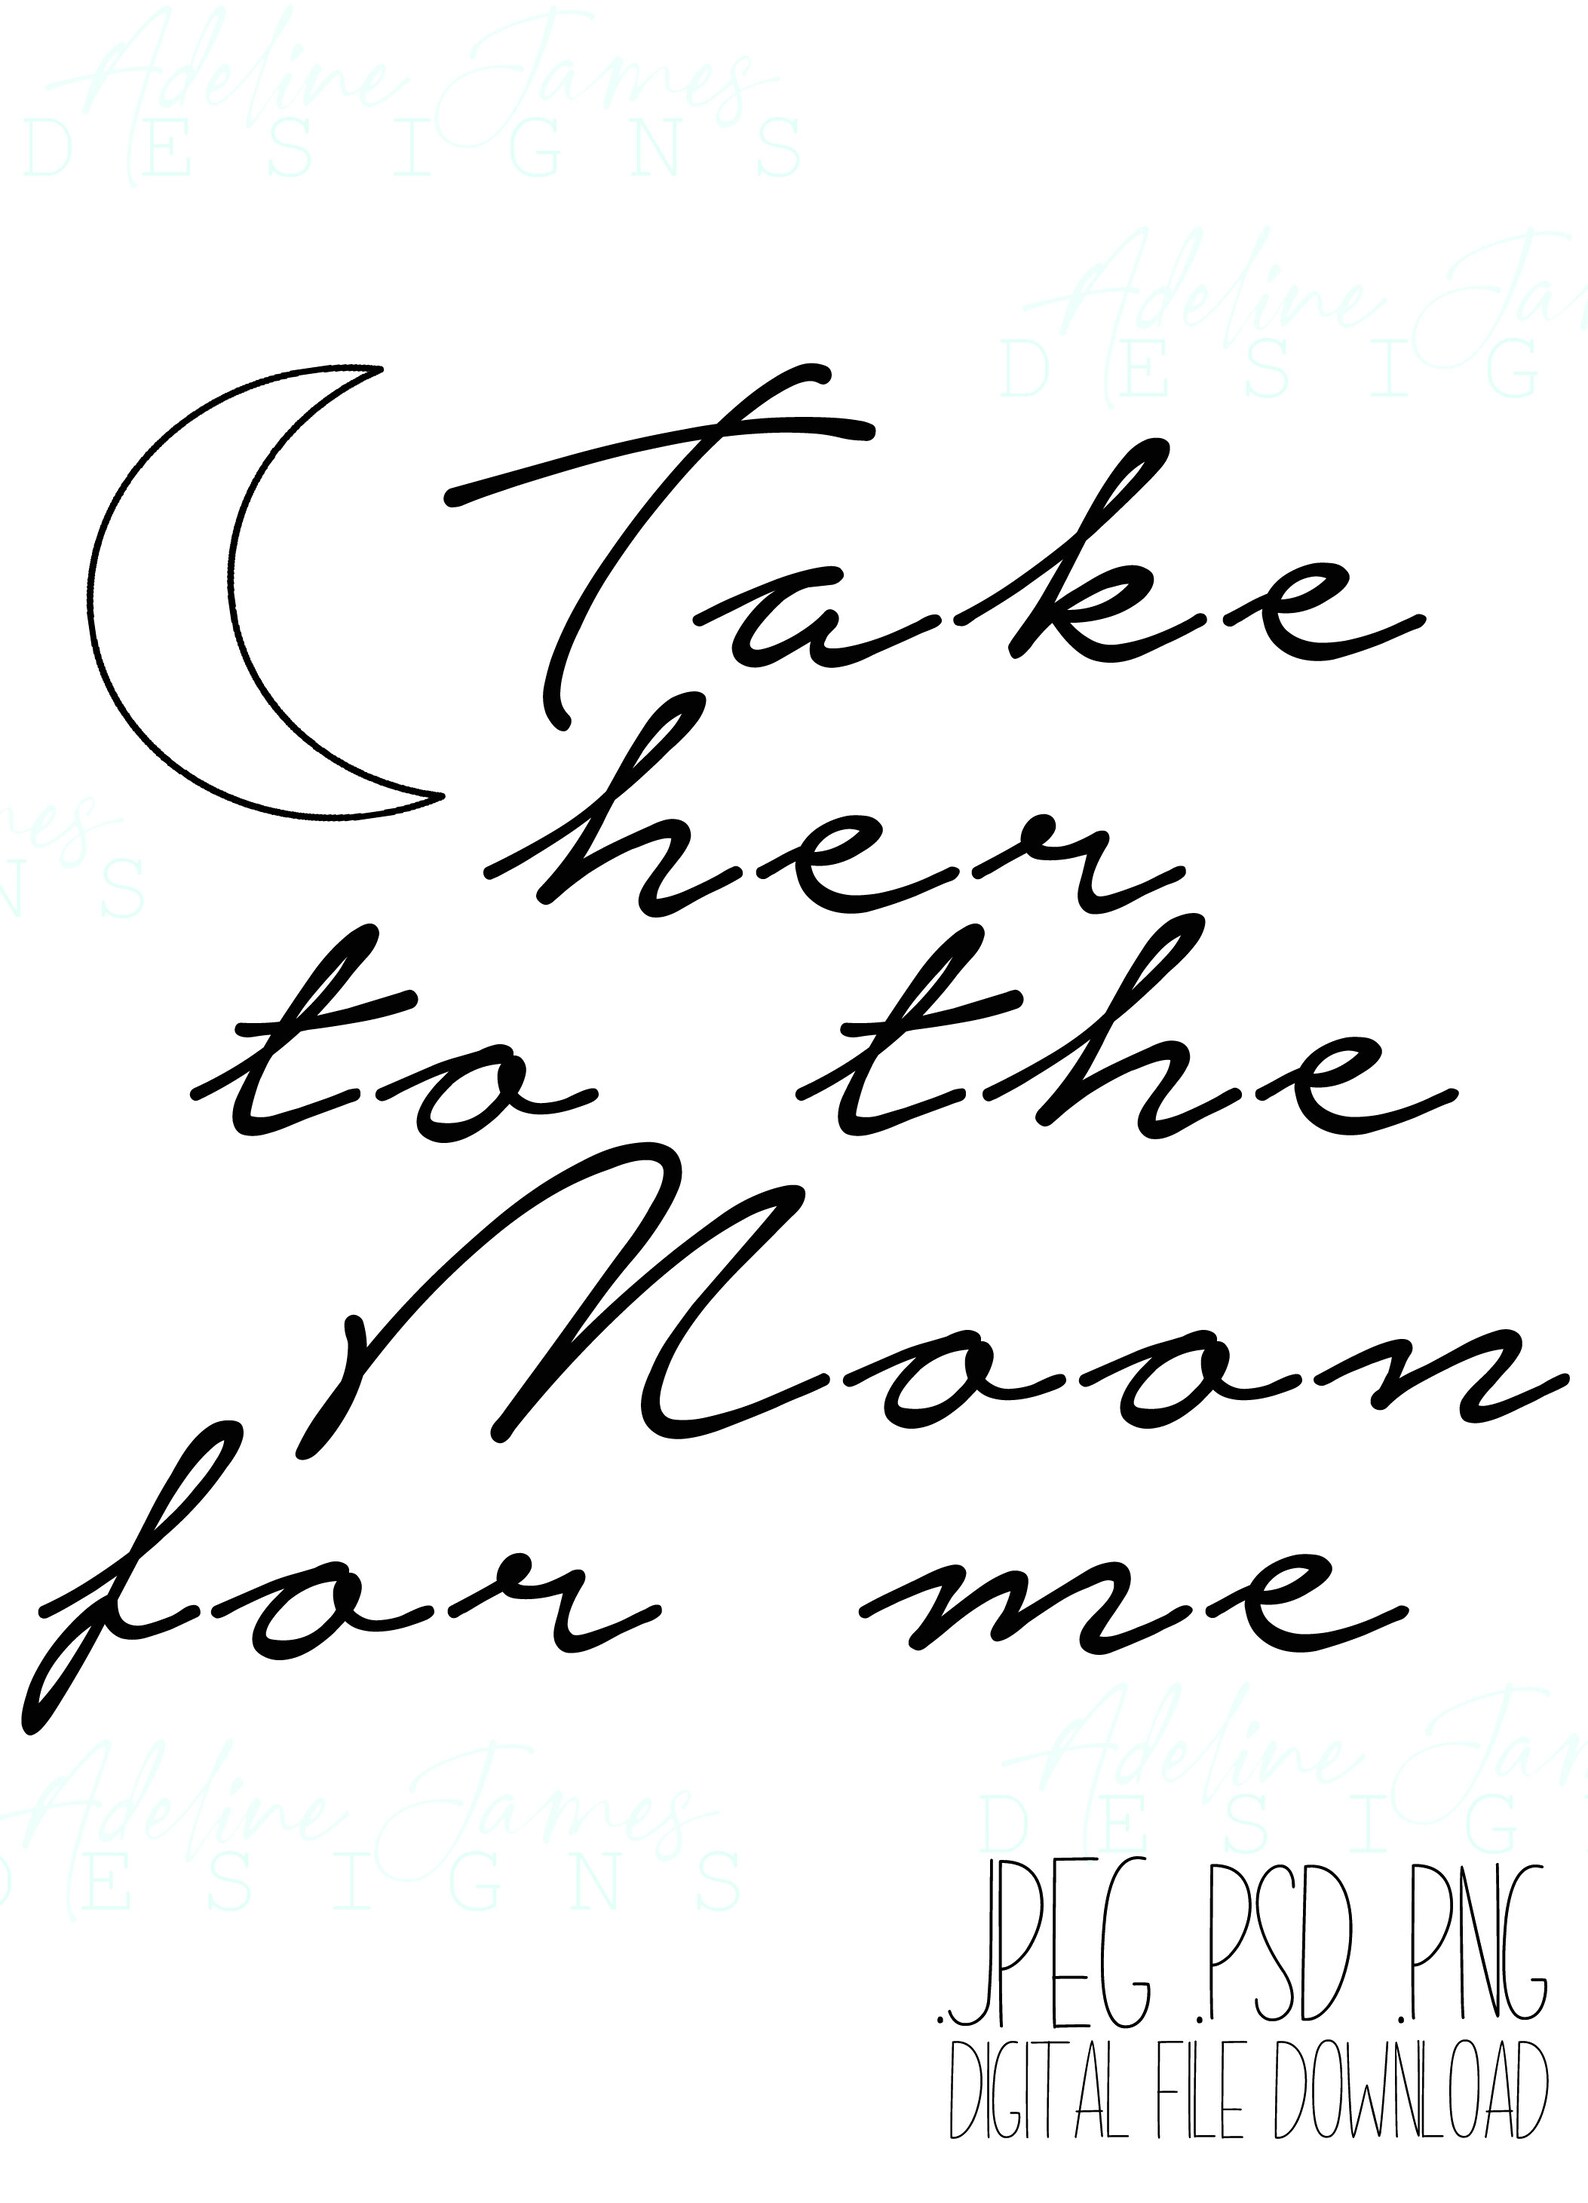 Adeline James
DESIGNS
Adeline Jam
DESIG
Take
her
mes
NS
to the
Moon
for me
Adeline Jam
DESIG
Adeline James
DESIGNS
.JPEG .PSD .PNG
DIGITAL FILE DOWNLOAD